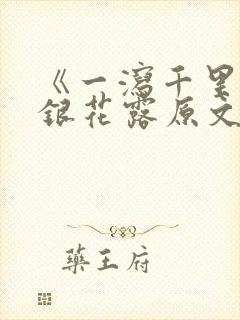 《一瀉千里
銀花露原文
藥王府